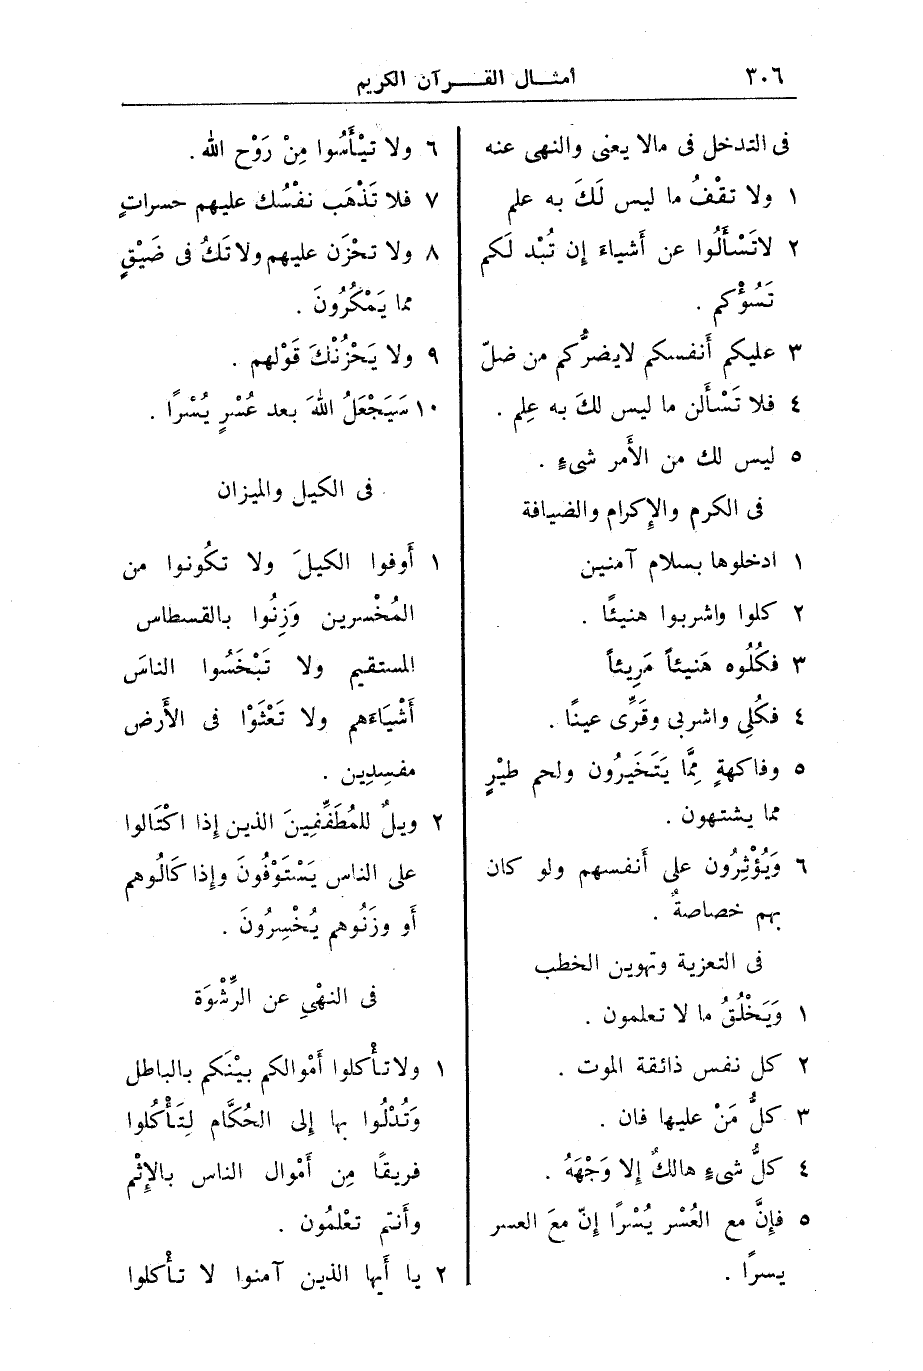 ٣٠٦
أمثال القرآن الكريم
فى التدخل فى مالا يعنى والنهى عنه
١ ولا تقْفُ ما ليس لَكَ به علم
٢ لاتَسْأَلُوا عن أشياءَ إن تُبْد لَكم
تَسُؤْكم .
٣ عليكم أَنفسكم لايضرُّكم من ضلّ
٤ فلا تَسْأَلن ما ليس لكَ به عِلم .
٥ ليس لك من الأَمر شىءٍ .
فى الكرم والإكرام والضيافة
١ ادخلوها بسلام آمنين
٢ كلوا واشربوا هنيئًا .
٣ فكُلُوه هَنيئاً مَرِيئاً
٤ فكُلِى واشربى وقَرِّى عينًا .
٥ وفاكهةٍ مِمَّا يَتَخَيرُون ولحم طيْرٍ
مما يشتهون .
٦ وَيُؤْثِرُون على أَنفسهم ولو كان
بهم خصاصةٌ .
فى التعزية وتهوين الخطب
١ وَيَخْلُقُ ما لا تعلمون .
٢ كل نفس ذائقة الموت .
٣ كلُّ مَنْ عليها فان .
٤ كلُّ شىءٍ هالكٌ إلا وَجْهَهُ .
٥ فإنَّ مع العُسْر يُسْرًا إنّ معَ العسر
يسرًا .
٦ ولا تيْأَسُوا مِنْ رَوْح الله .
٧ فلا تَذْهَب نفْسُك عليهم حسراتٍ
٨ ولا تحْزَن عليهم ولا تَكُ فى ضَيْقٍ
مما يَمْكُرُونَ .
٩ ولا يَحْزُنْكَ قَوْلهم .
١٠ سَيَجْعَلُ اللهَ بعد عُسْرٍ يُسْرًا .
فى الكيل والميزان
١ أَوفوا الكيلَ ولا تكُونوا من
المُخْسرين وَزِنُوا بالقسطاس
المستقيم ولا تَبْخَسُوا الناسَ
أَشْيَاءَهم ولا تَعْثَوْا فى الأَرض
مفسِدِين .
٢ ويلٌ للمُطَفِّفِينَ الذين إذا اكْتَالوا
على الناس يَسْتَوْفُونَ وإذا كَالُوهم
أَو وزَنُوهم يُخْسِرُونَ .
فى النهْىِ عن الرِّشْوَة
١ ولاتأْكلوا أَمْوالكم بيْنَكم بالباطل
وَتُدْلُوا بها إلى الحُكَّام لِتَأْكُلوا
فريقًا مِن أَمْوال الناس بالإثْم
وأَنتم تعْلمُون .
٢ يا أَيها الذين آمنوا لا تأْكلوا